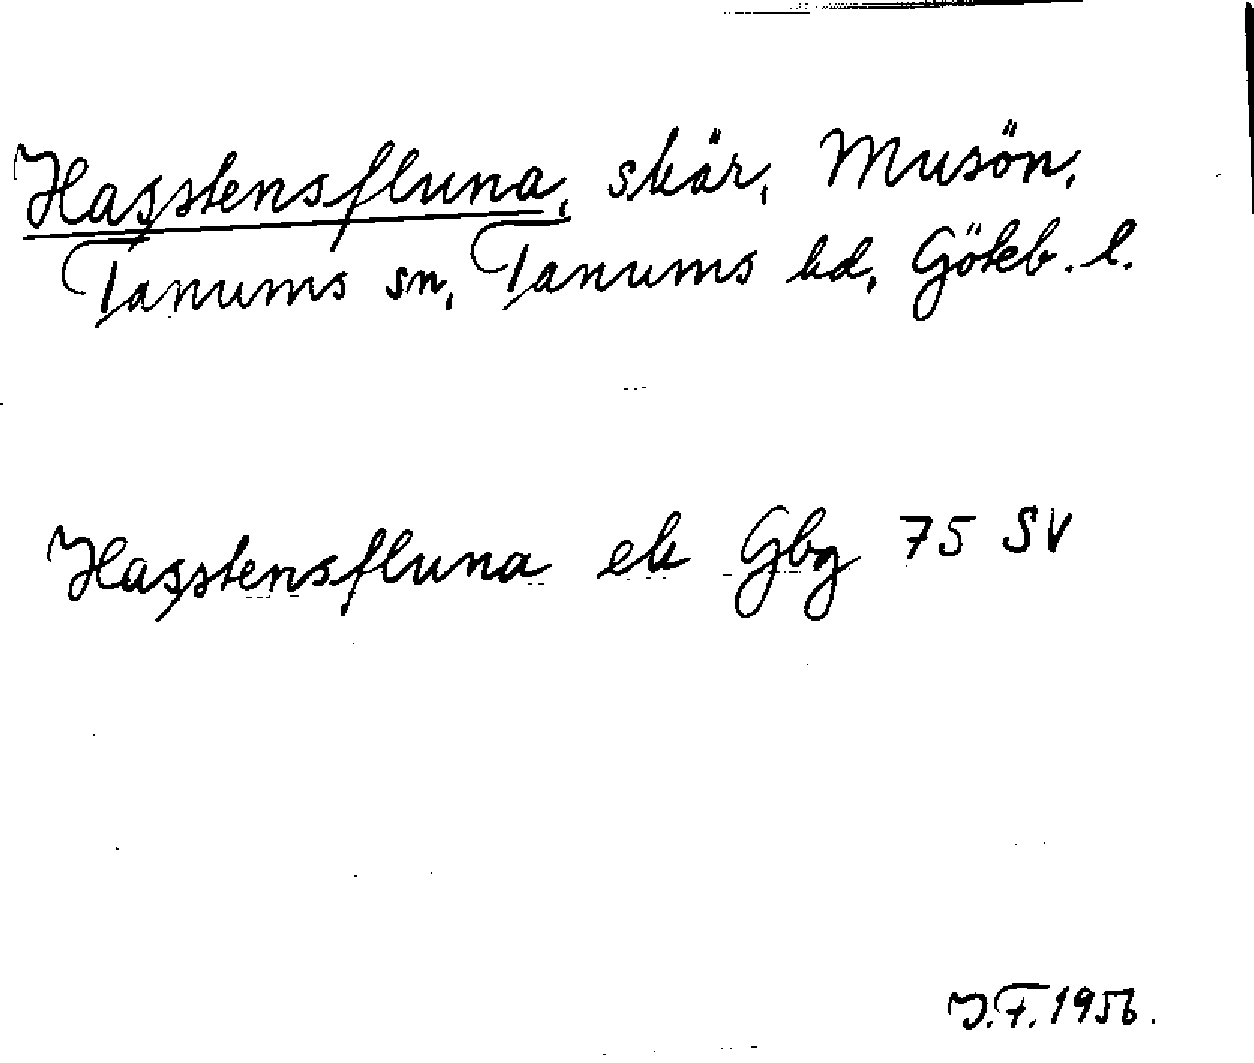 Hagstensfluna, skär, Musön,
Tanums sn, Tanums hd, Göteb. l.
Hagstensfluna ek Gbg 75 SV
J.F. 1956.